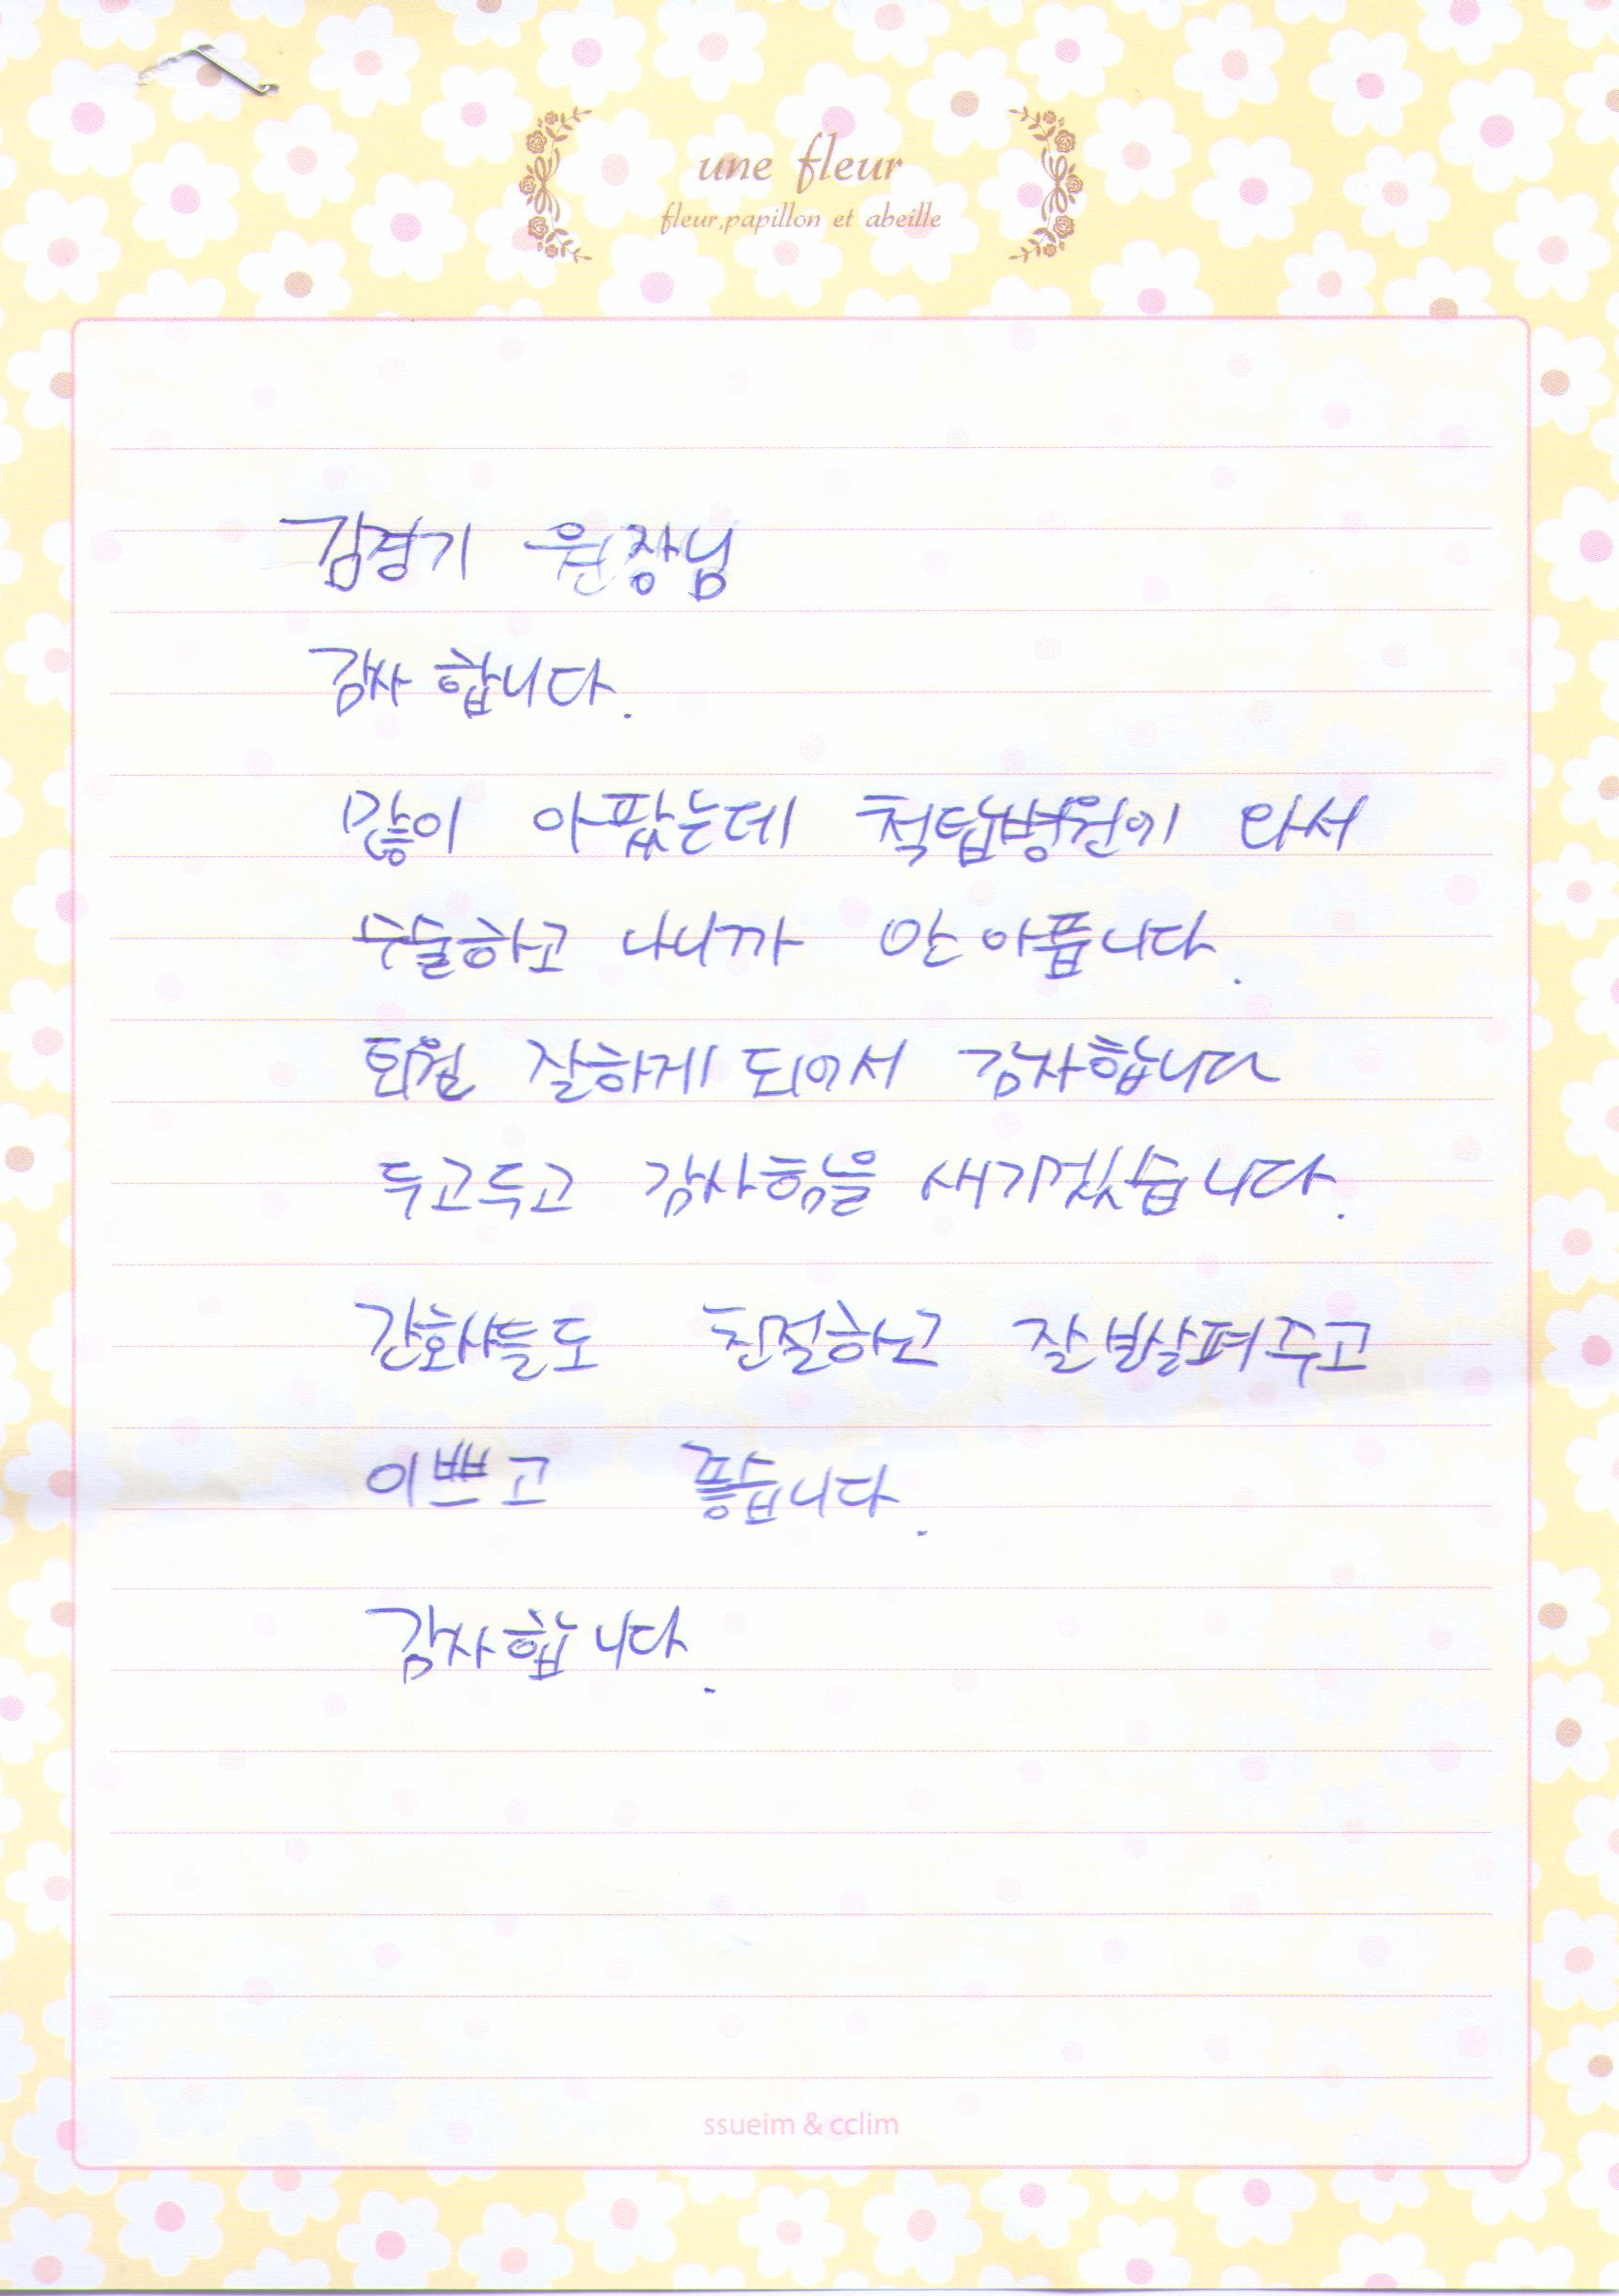 une fleur
fleur,papillon et abeille
김경기 원장님
감사 합니다.
많이 아팠는데 척탑병원이 와서
수술하고 나니까 안 아픕니다.
퇴원 잘하게 되어서 감사합니다
두고두고 감사함을 새기겠습니다.
간호사들도 친절하고 잘 보살펴주고
이쁘고 좋습니다.
감사합니다.
ssueim & cclim